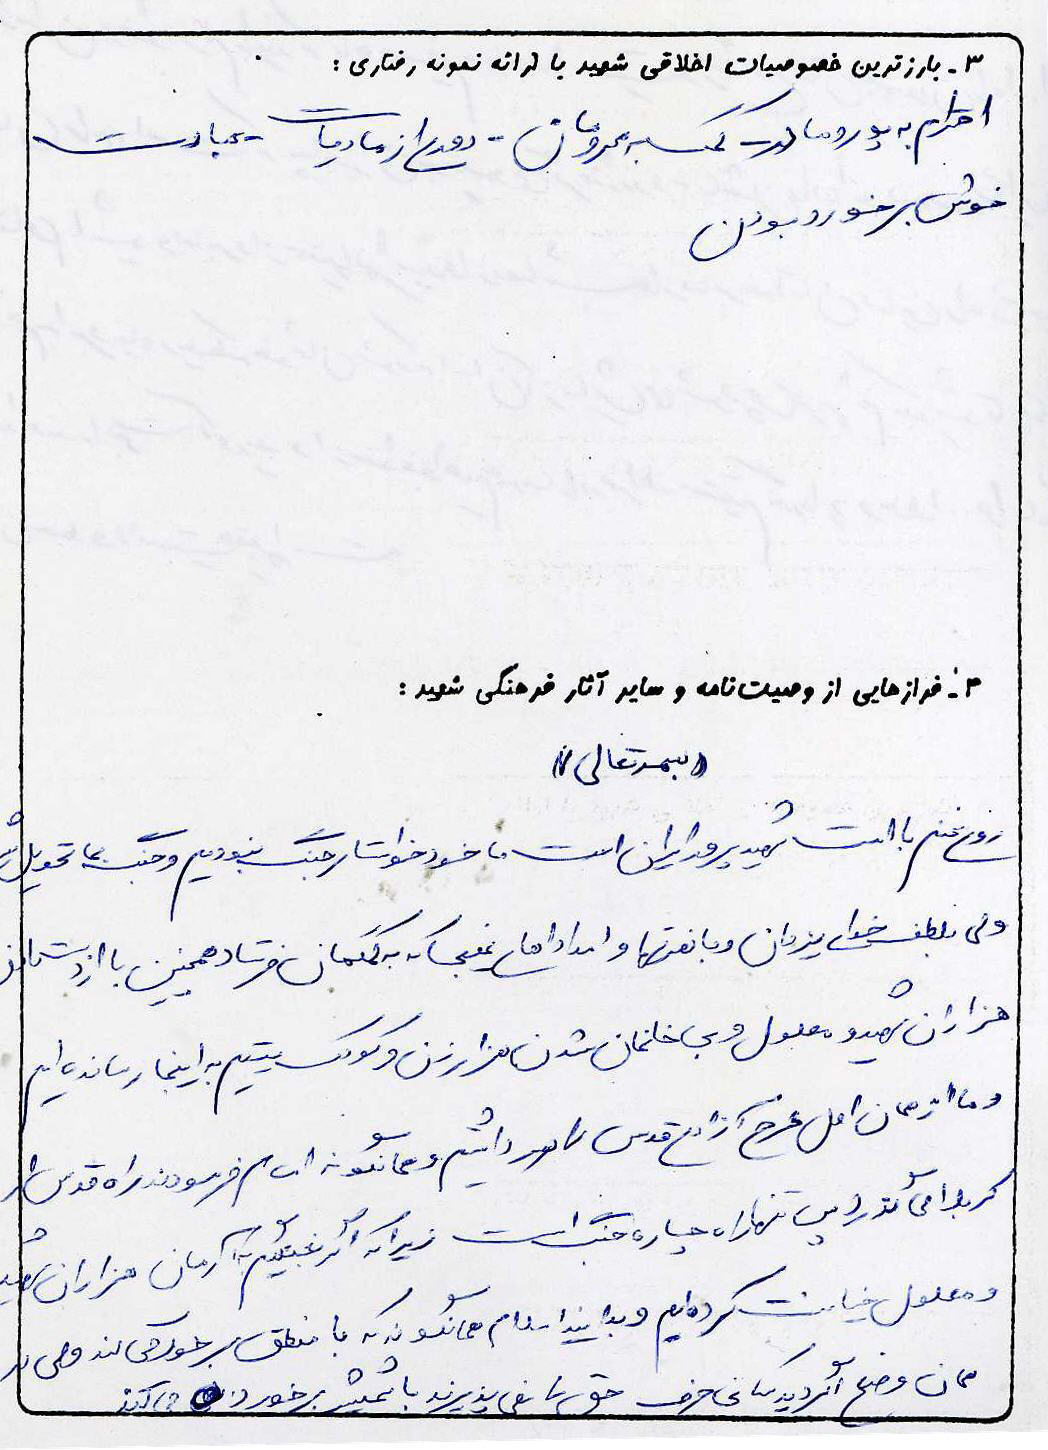 ۳- بارزترین خصوصیات اخلاقی شهید با ارائه نمونه رفتاری :
احترام به پدر و مادر - کمک به محرومان - دوری از مادیات - عبادت
خوش برخورد بودن
۴- فرازهایی از وصیت‌نامه و سایر آثار فرهنگی شهید :
«بسمه تعالی»
با امت شهید پرور ایران است ما خود خواستار جنگ نبودیم و جنگ بما تحمیل شد
ولی بلطف خدای یزدان و با نصرتها و امدادهای غیبی که به کمکمان فرستاد همچنین با از دست دادن
هزاران شهید و معلول و بی خانمان شدن هزار زن و کودک یتیم به اینجا رسانده ایم
و ما از همان اول آزادی قدس را داشتیم و همانگونه امام فرمودند راه قدس از
کربلا می گذرد پس تنها راه چاره جنگ است زیرا که اگر نجنگیم به آرمان هزاران شهید
و معلول خیانت کرده ایم و بدانید اسلام همانگونه که با منطق برخورد می کند ولی در
همان وضع اگر دید کسانی حرف حق را نمی پذیرند با شمشیر برخورد می کند